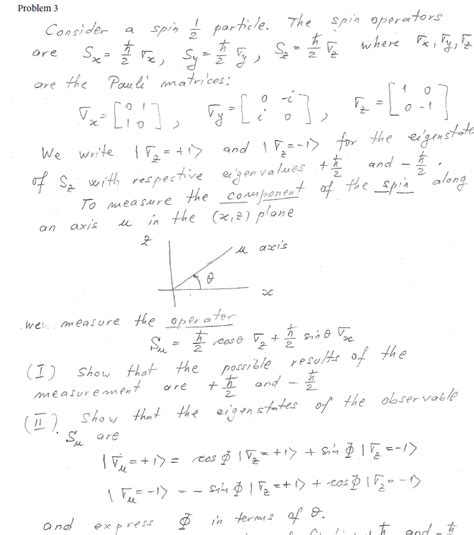 Problem 3
Consider a spin 1/2 particle. The spin operators
are Sx = ħ/2 σx, Sy = ħ/2 σy, Sz = ħ/2 σz where σx, σy, σz
are the Pauli matrices:
σx = [0 1; 1 0], σy = [0 -i; i 0], σz = [1 0; 0 -1]
We write |σz = +1⟩ and |σz = -1⟩ for the eigenstate
of Sz with respective eigenvalues +ħ/2 and -ħ/2.
To measure the component of the spin along
an axis u in the (x,z) plane
z
u axis
θ
x
we measure the operator
Su = ħ/2 cosθ σz + ħ/2 sinθ σx
(I) Show that the possible results of the
measurement are +ħ/2 and -ħ/2
(II) Show that the eigenstates of the observable
Su are
|σu = +1⟩ = cos Φ |σz = +1⟩ + sin Φ |σz = -1⟩
|σu = -1⟩ = - sin Φ |σz = +1⟩ + cos Φ |σz = -1⟩
and express Φ in terms of θ.